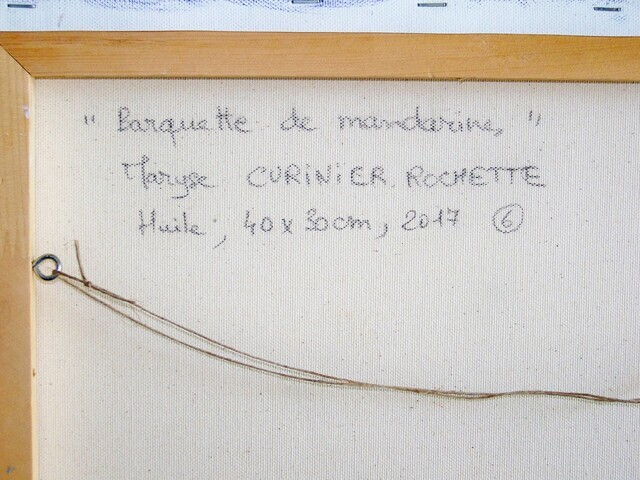 " Barquette de mandarine, "
Maryse CURINIER. ROCHETTE
Huile, 40 x 30 cm, 2017 ⑥